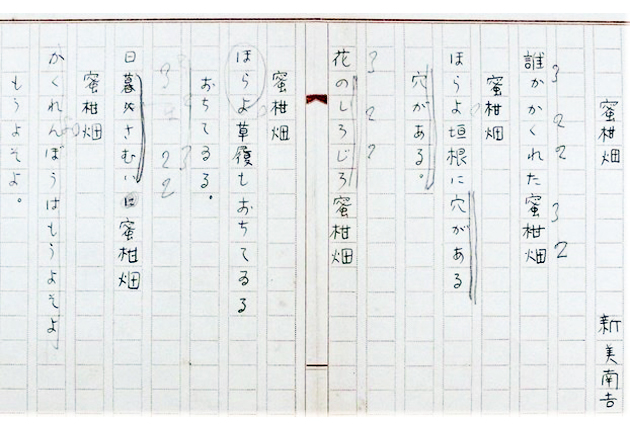 蜜柑畑
新美南吉
誰かかくれた蜜柑畑
3 2 2 3 2
蜜柑畑
ほらよ垣根に穴がある
穴がある。
3 2 2
花のしろじろ蜜柑畑
蜜柑畑
ほらよ草履もおちてゐる
おちてゐる。
3 2 2 3 2
日暮めさむいに蜜柑畑
蜜柑畑
かくれんぼうはもうよそよ
もうよそよ。